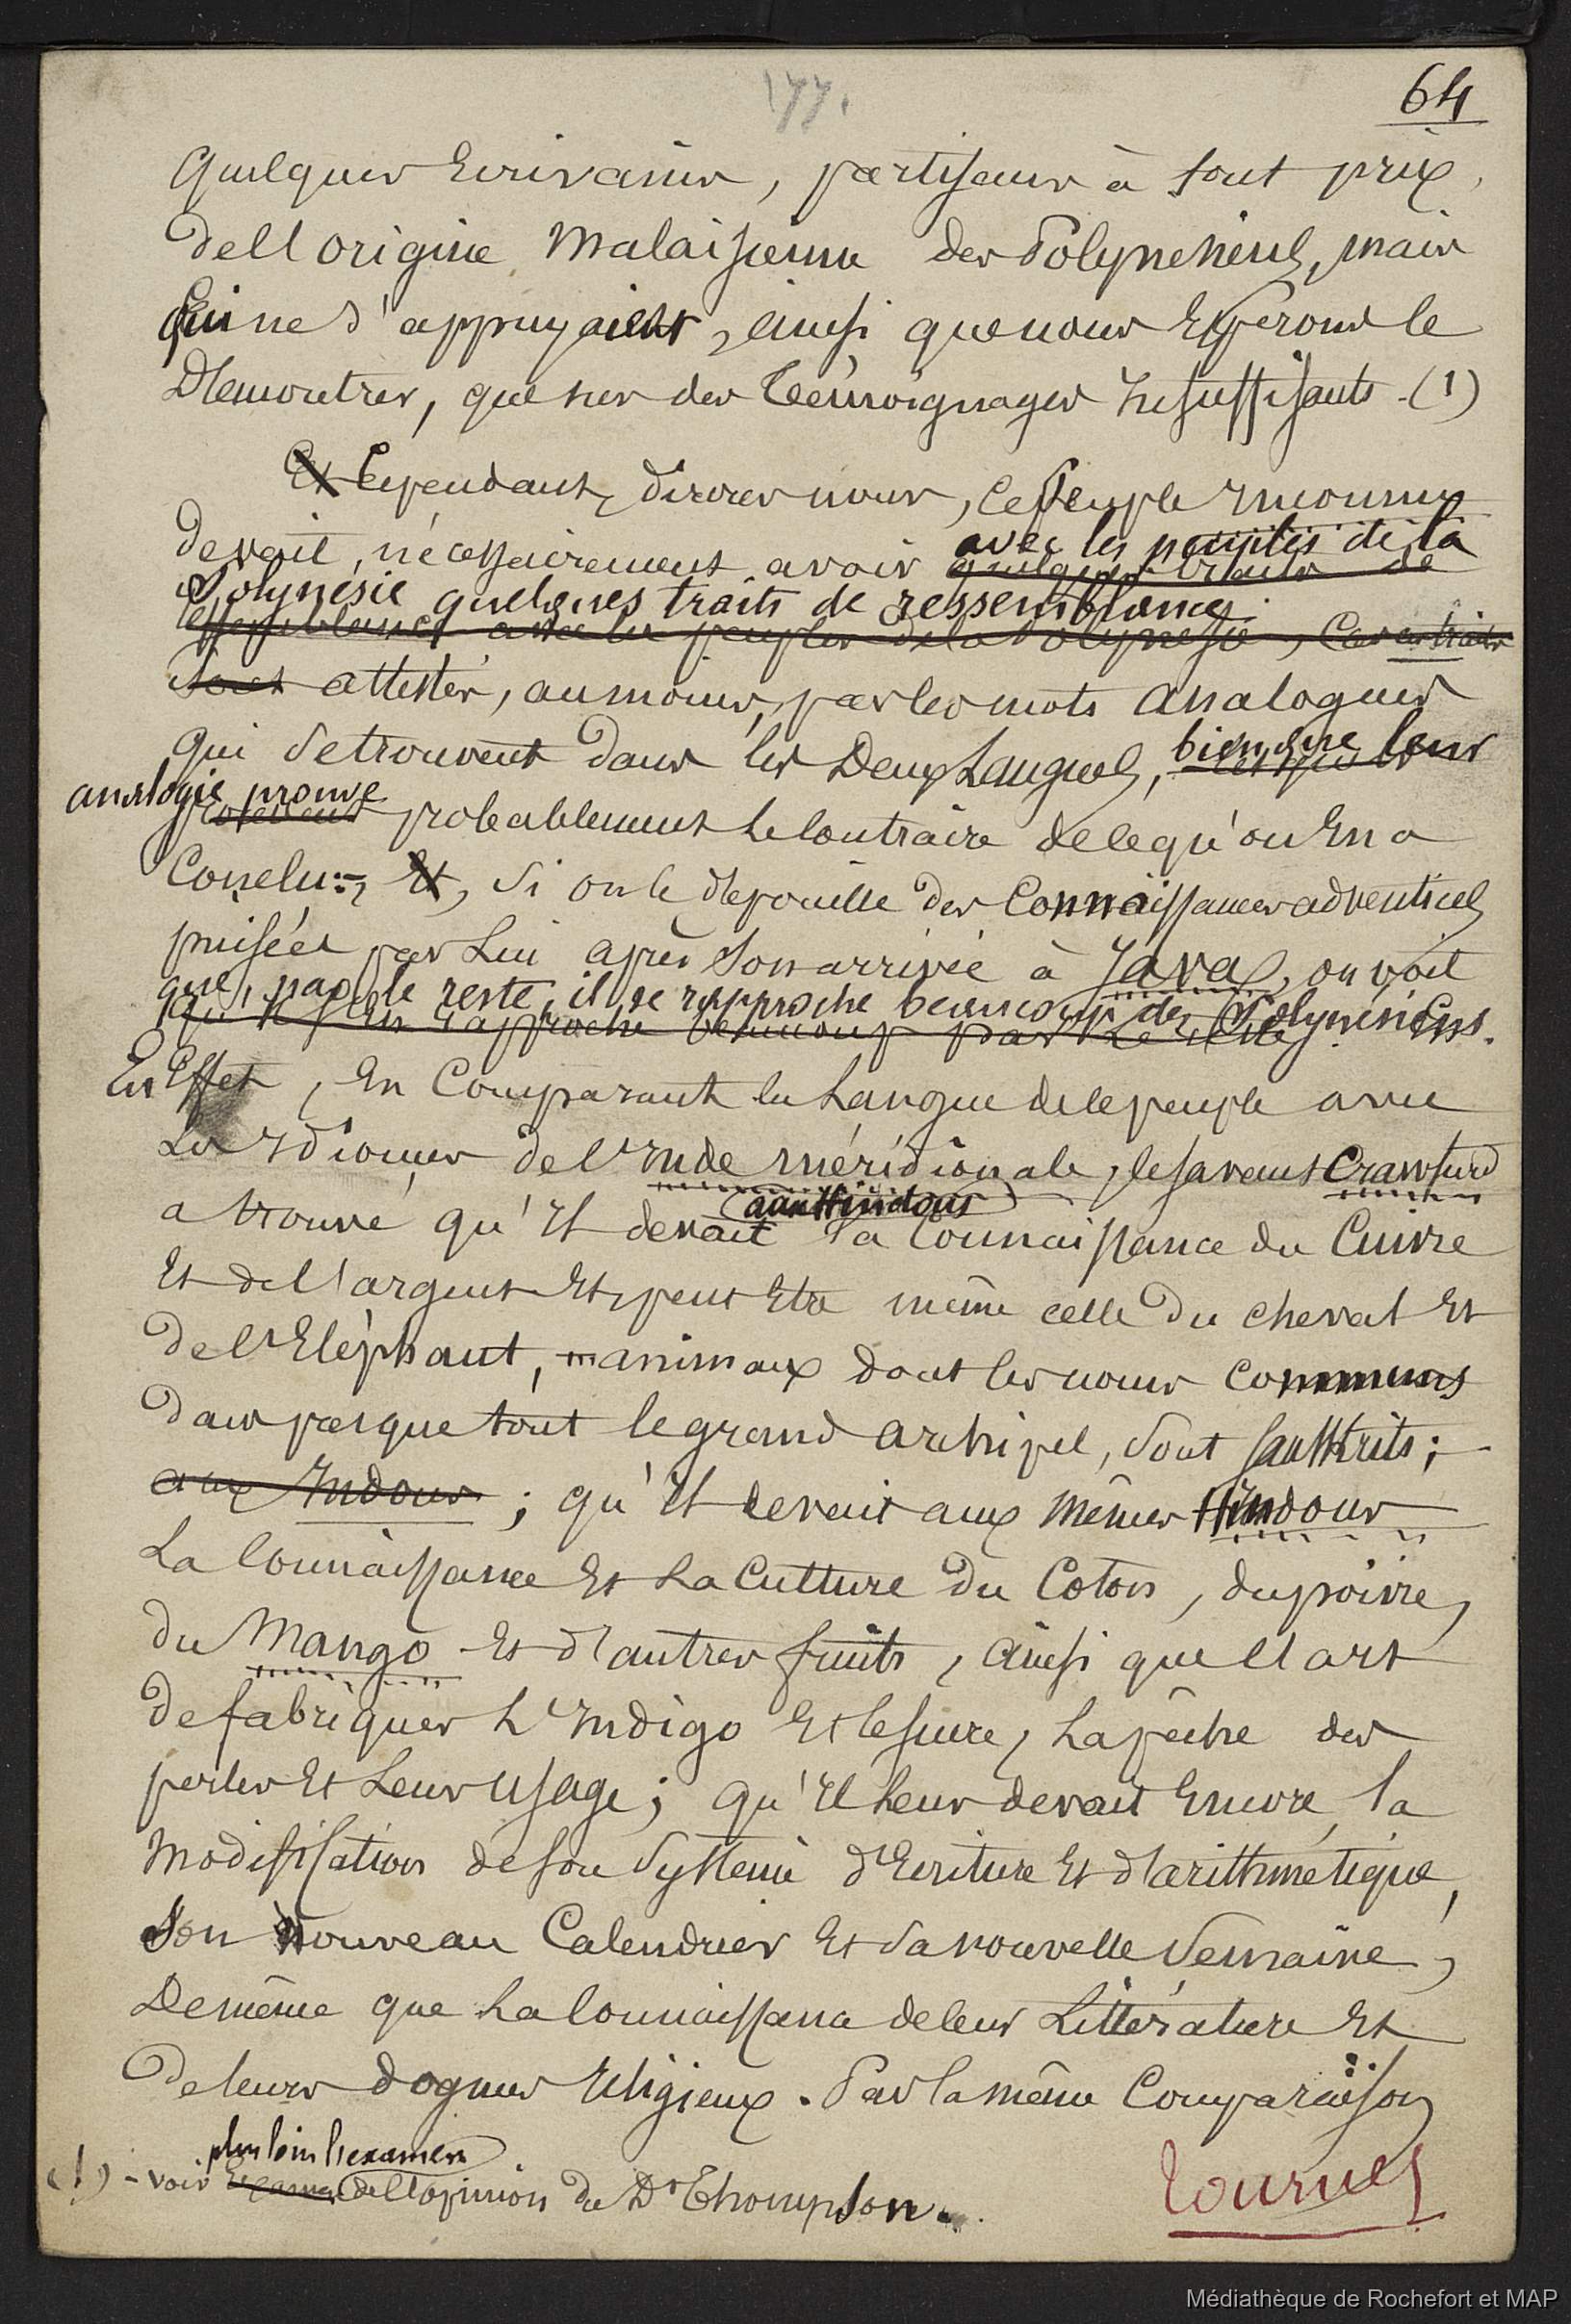 177.
64
Quelques Ecrivains, partisans à tout prix,
de l'origine Malaisienne des Polynésiens, mais
qui ne s'appuyaient, ainsi que nous Espérons le
Démontrer, que sur des témoignages Insuffisants - (1)
Et Cependant, dirons nous, ce peuple Inconnu
devait, nécessairement avoir avec les peuples de la
quelques traits de
Polynésie quelques traits de ressemblance.
ressemblance avec les peuples de la Polynésie, Car ces traits
sont attestés, au moins, par les mots analogues
qui se trouvent dans les Deux Langues, bien que leur
analogie prouve probablement le contraire de ce qu'on En a
Conclu :-, Et, si on le dépouille des Connaissances adventices
puisées par Lui après son arrivée à Java, on voit
que, par le reste, il se rapproche beaucoup des Polynésiens.
qu'Il s'en rapproche beaucoup par le reste.
En Effet, En Comparant la Langue de ce peuple avec
Les Idiomes de l'Inde méridionale, le savant Crawfurd
aux Hindous
a trouvé qu'Il devait la Connaissance du Cuivre
Et de l'argent Et, peut Etre même celle du cheval Et
de l'Eléphant, animaux dont les noms communs
dans presque tout le grand archipel, sont sanskrits ;
aux Indous ; qu'Il devait aux mêmes Hindous
La Connaissance Et La Culture du Coton, du poivre,
du Mango Et d'autres fruits, ainsi que l'art
de fabriquer L'Indigo Et le sucre, La pêche des
perles Et Leur usage ; qu'Il Leur devait Encore, la
modification de son système d'Ecriture Et d'arithmétique,
son nouveau Calendrier Et sa nouvelle Semaine,
De même que La Connaissance de leur Littérature Et
de leurs dogmes religieux. Par la même Comparaison
plus loin l'examen
(1) - voir Examen de l'opinion du Dr Thompson.
Tournez
Médiathèque de Rochefort et MAP